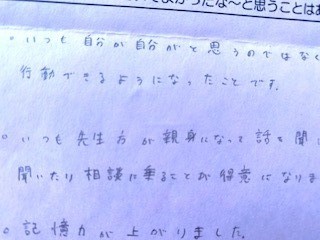 てよかったな〜と思うことはあ
。いつも自分が自分がと思うのではなく
行動できるようになったことです。
。いつも先生方が親身になって話を聞
聞いたり相談に乗ることが得意になりま
。記憶力が上がりました。